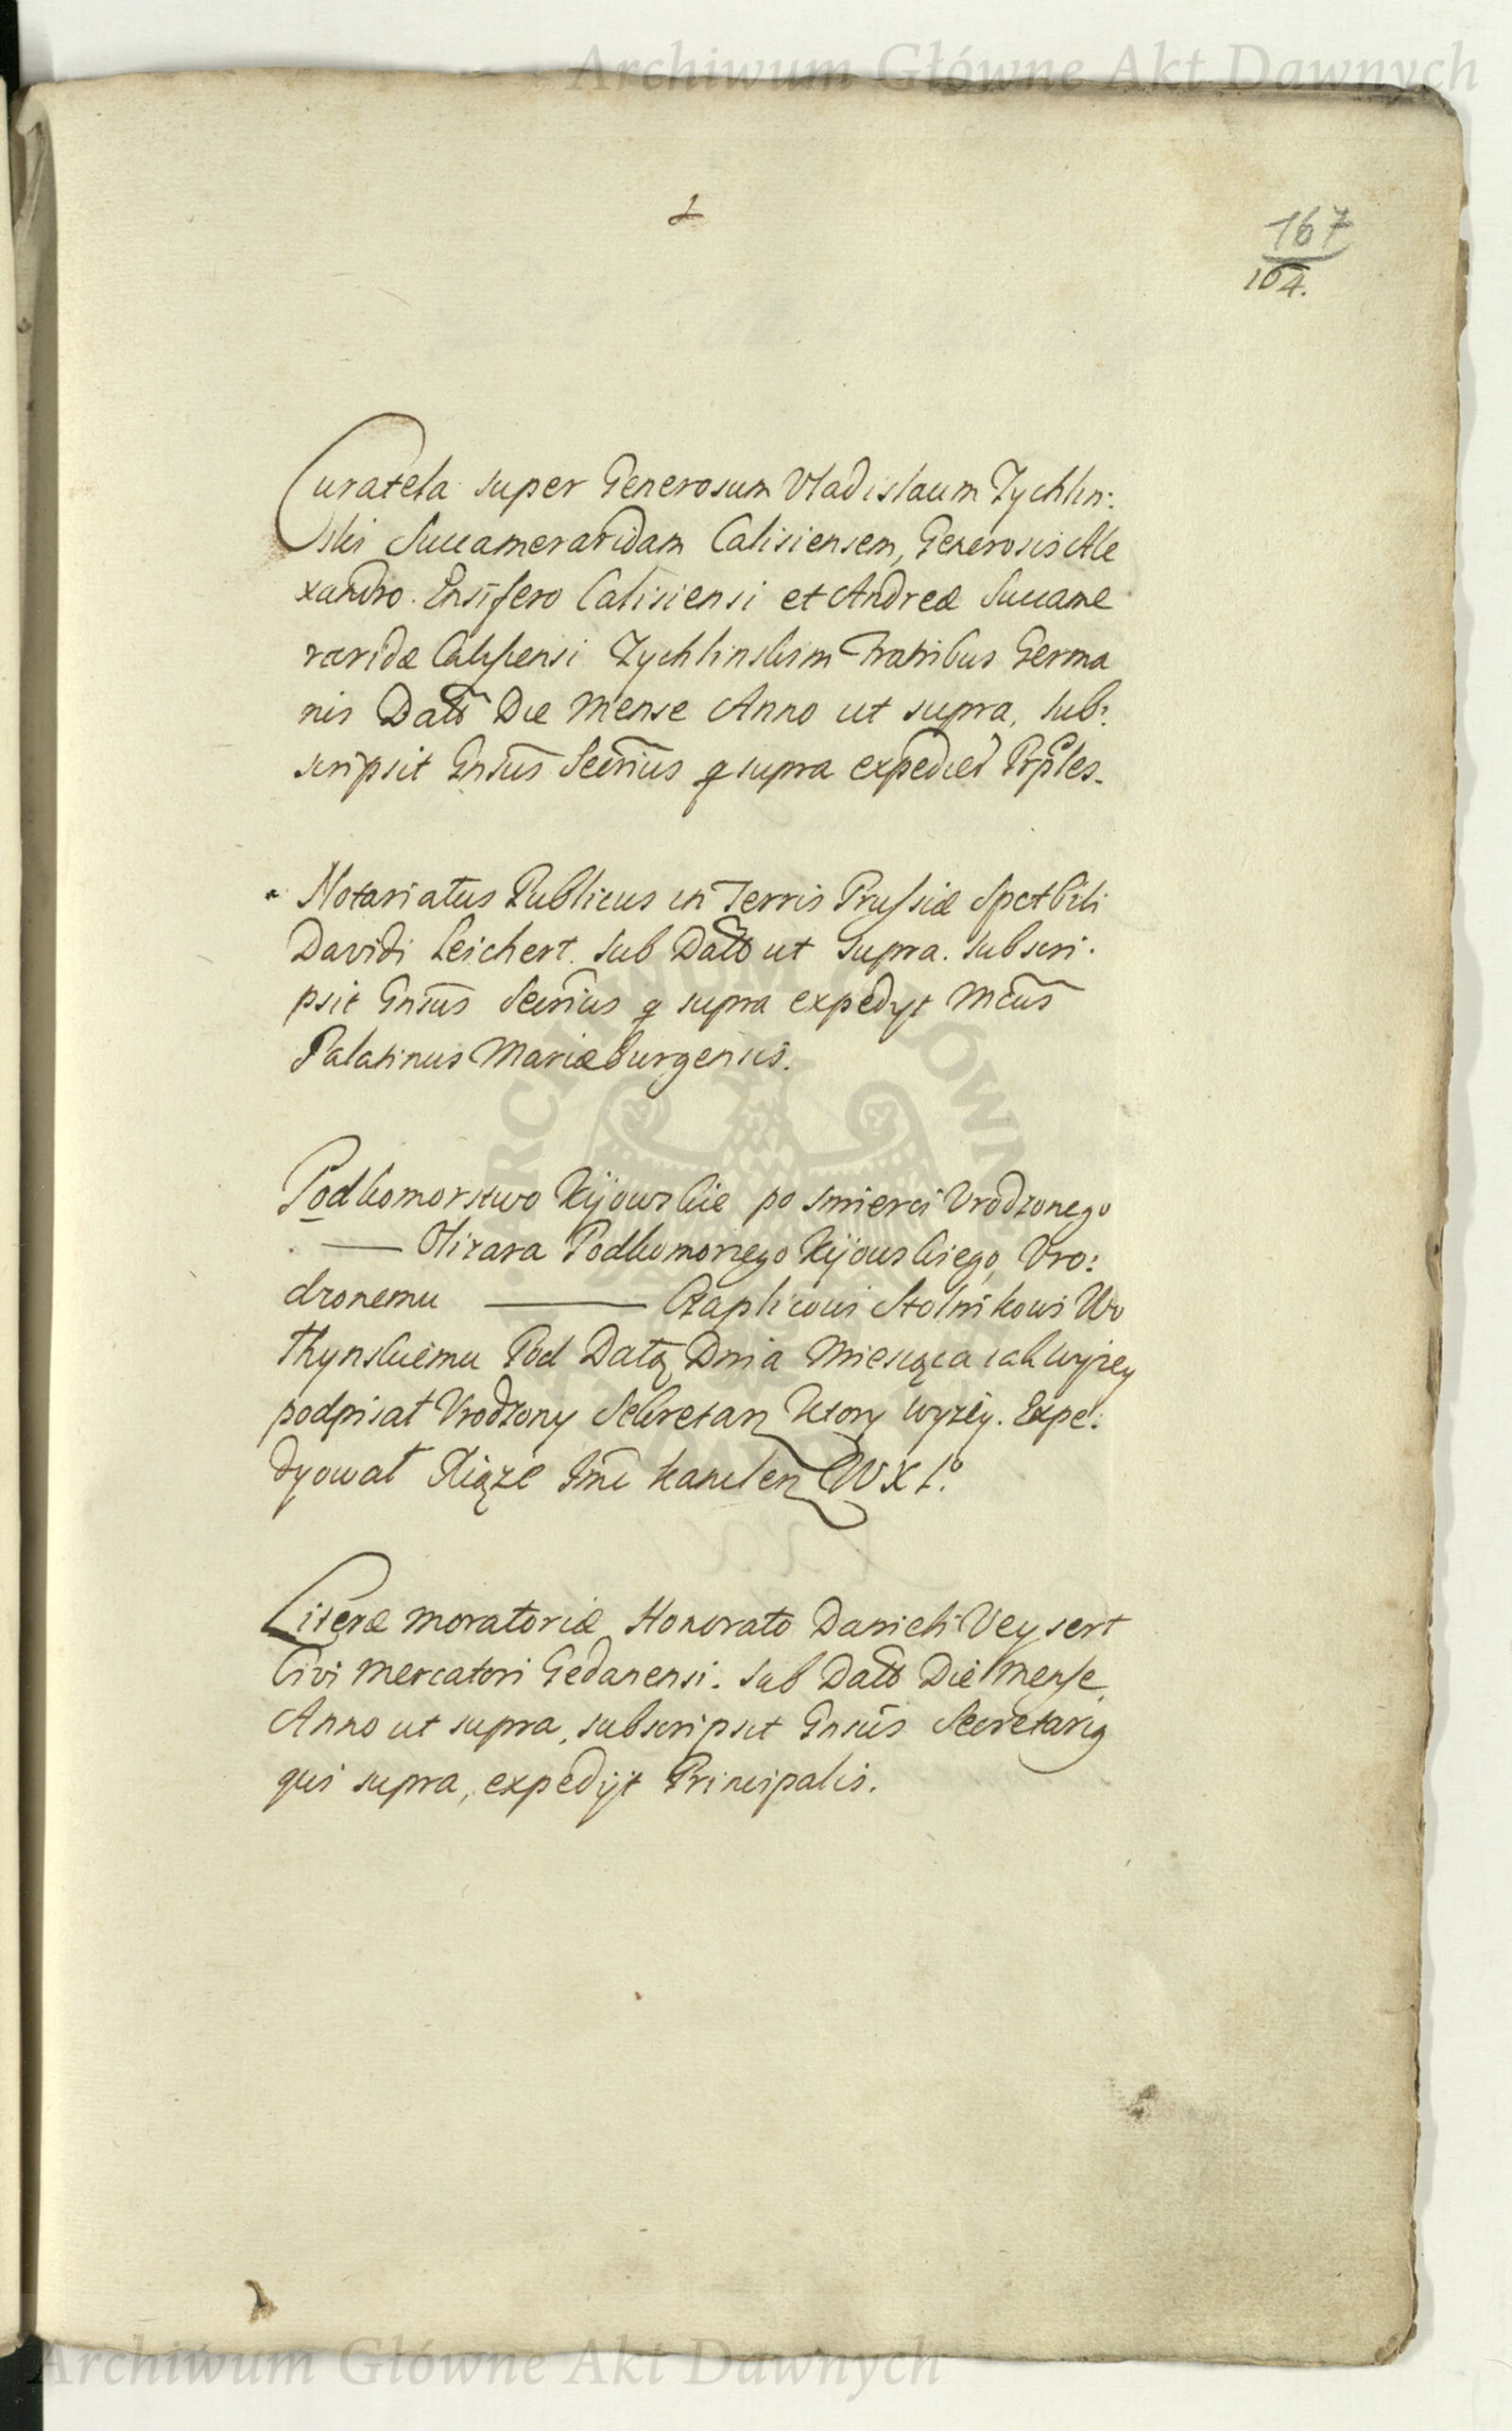 Archiwum Główne Akt Dawnych
167
104.
Curatela super Generosum Vladislaum Zychlin:
ski Succameraridam Calisiensem, Generosis Ale
xandro Ensifero Calisiensi et Andreæ Succame
raridæ Calisiensi Zychlinskim Fratribus Germa
nis Datō Die Mense Anno ut supra, sub:
scripsit Gnsūs Secrīus q supra expediet Prples.
Notariatus Publicus in Terris Prussiæ Spctbili
Davidi Leichert. sub Datō ut supra. subscri:
psit Gnsūs Secrīus q supra expedyt Mcūs
Palatinus Mariæburgensis.
Podkomorstwo Kijowskie po smierci Vrodzonego
—— Olizara Podkomorzego Kijowskiego, Vro:
dzonemu —— Czaplicowi Stolnikowi Wo
łhynskiemu Pod Datą Dnia Miesiąca iak wyzey
podpisał Vrodzony Sekretarz ktory wyzey. Expe:
dyował Xiąze Jmē kanclerz WXL°
Literæ moratoriæ Honorato Danieli Veysert
Civi Mercatori Gedanensi. sub Datō Die Mense
Anno ut supra, subscripsit Gnsūs Secretarig
qui supra, expedijt Principalis.
Archiwum Główne Akt Dawnych